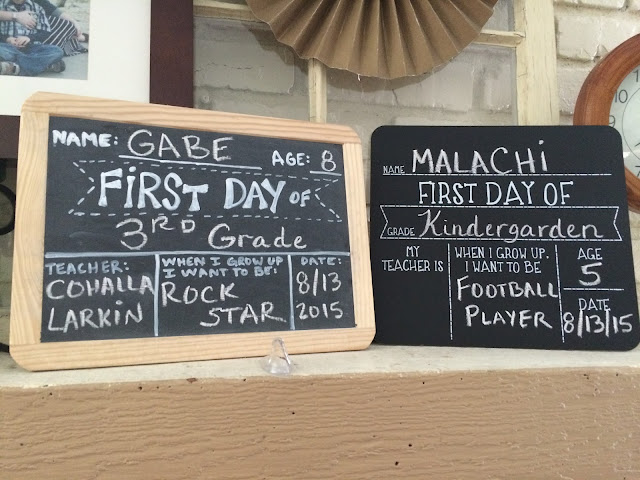 NAME: GABE AGE: 8
FiRST DAY OF
3RD Grade
TEACHER:
COHALLA
LARKIN
WHEN I GROW UP
I WANT TO BE:
ROCK
STAR
DATE:
8/13
2015
NAME MALACHi
FIRST DAY OF
GRADE Kindergarden
MY
TEACHER IS
WHEN I GROW UP,
I WANT TO BE
FOOTBALL
PLAYER
AGE
5
DATE
8/13/15
10